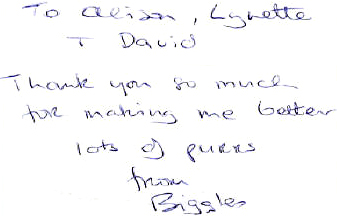 To Alison, Lynette
+ David
Thank you so much
for making me better
lots of purrs
from
Biggles